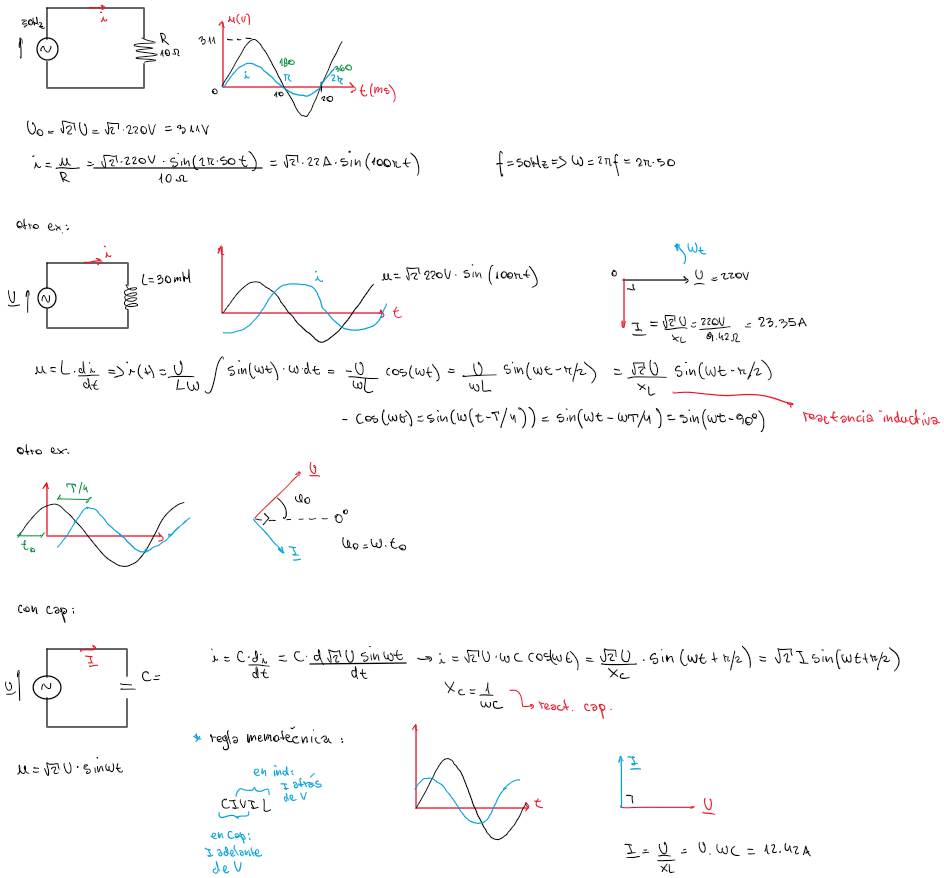 50Hz
i
R
10Ω
u(V)
311
i
180
π
360
2π
0
10
20
t(ms)
U₀ = √2 U = √2 · 220V = 311V
i = u/R = √2 · 220V · sin(2π·50t) / 10Ω = √2 · 22A · sin(100πt)
f = 50Hz => ω = 2πf = 2π·50
otro ex.:
i
U
L = 30mH
i
t
u = √2 220V · sin(100πt)
ωt
0
U = 220V
I = √2 U / XL = 220V / 9.42Ω = 23.35A
u = L · di/dt => i(t) = U/Lω ∫ sin(ωt) · ω·dt = -U/ωL cos(ωt) = U/ωL sin(ωt - π/2) = √2 U/XL sin(ωt - π/2)
- cos(ωt) = sin(ω(t - T/4)) = sin(ωt - ωT/4) = sin(ωt - 90°)
reactancia inductiva
otro ex.
T/4
t₀
U
φ₀
0°
I
φ₀ = ω·t₀
con cap:
I
U
C =
i = C · di/dt = C · d √2 U sin ωt / dt → i = √2 U · ωC cos(ωt) = √2 U/XC · sin(ωt + π/2) = √2 I sin(ωt + π/2)
XC = 1/ωC
react. cap.
u = √2 U · sin ωt
* regla memotécnica:
en ind:
I atrás
de V
CIVIL
en Cap:
I adelante
de V
t
I
U
I = U/XL = U · ωC = 12.42A